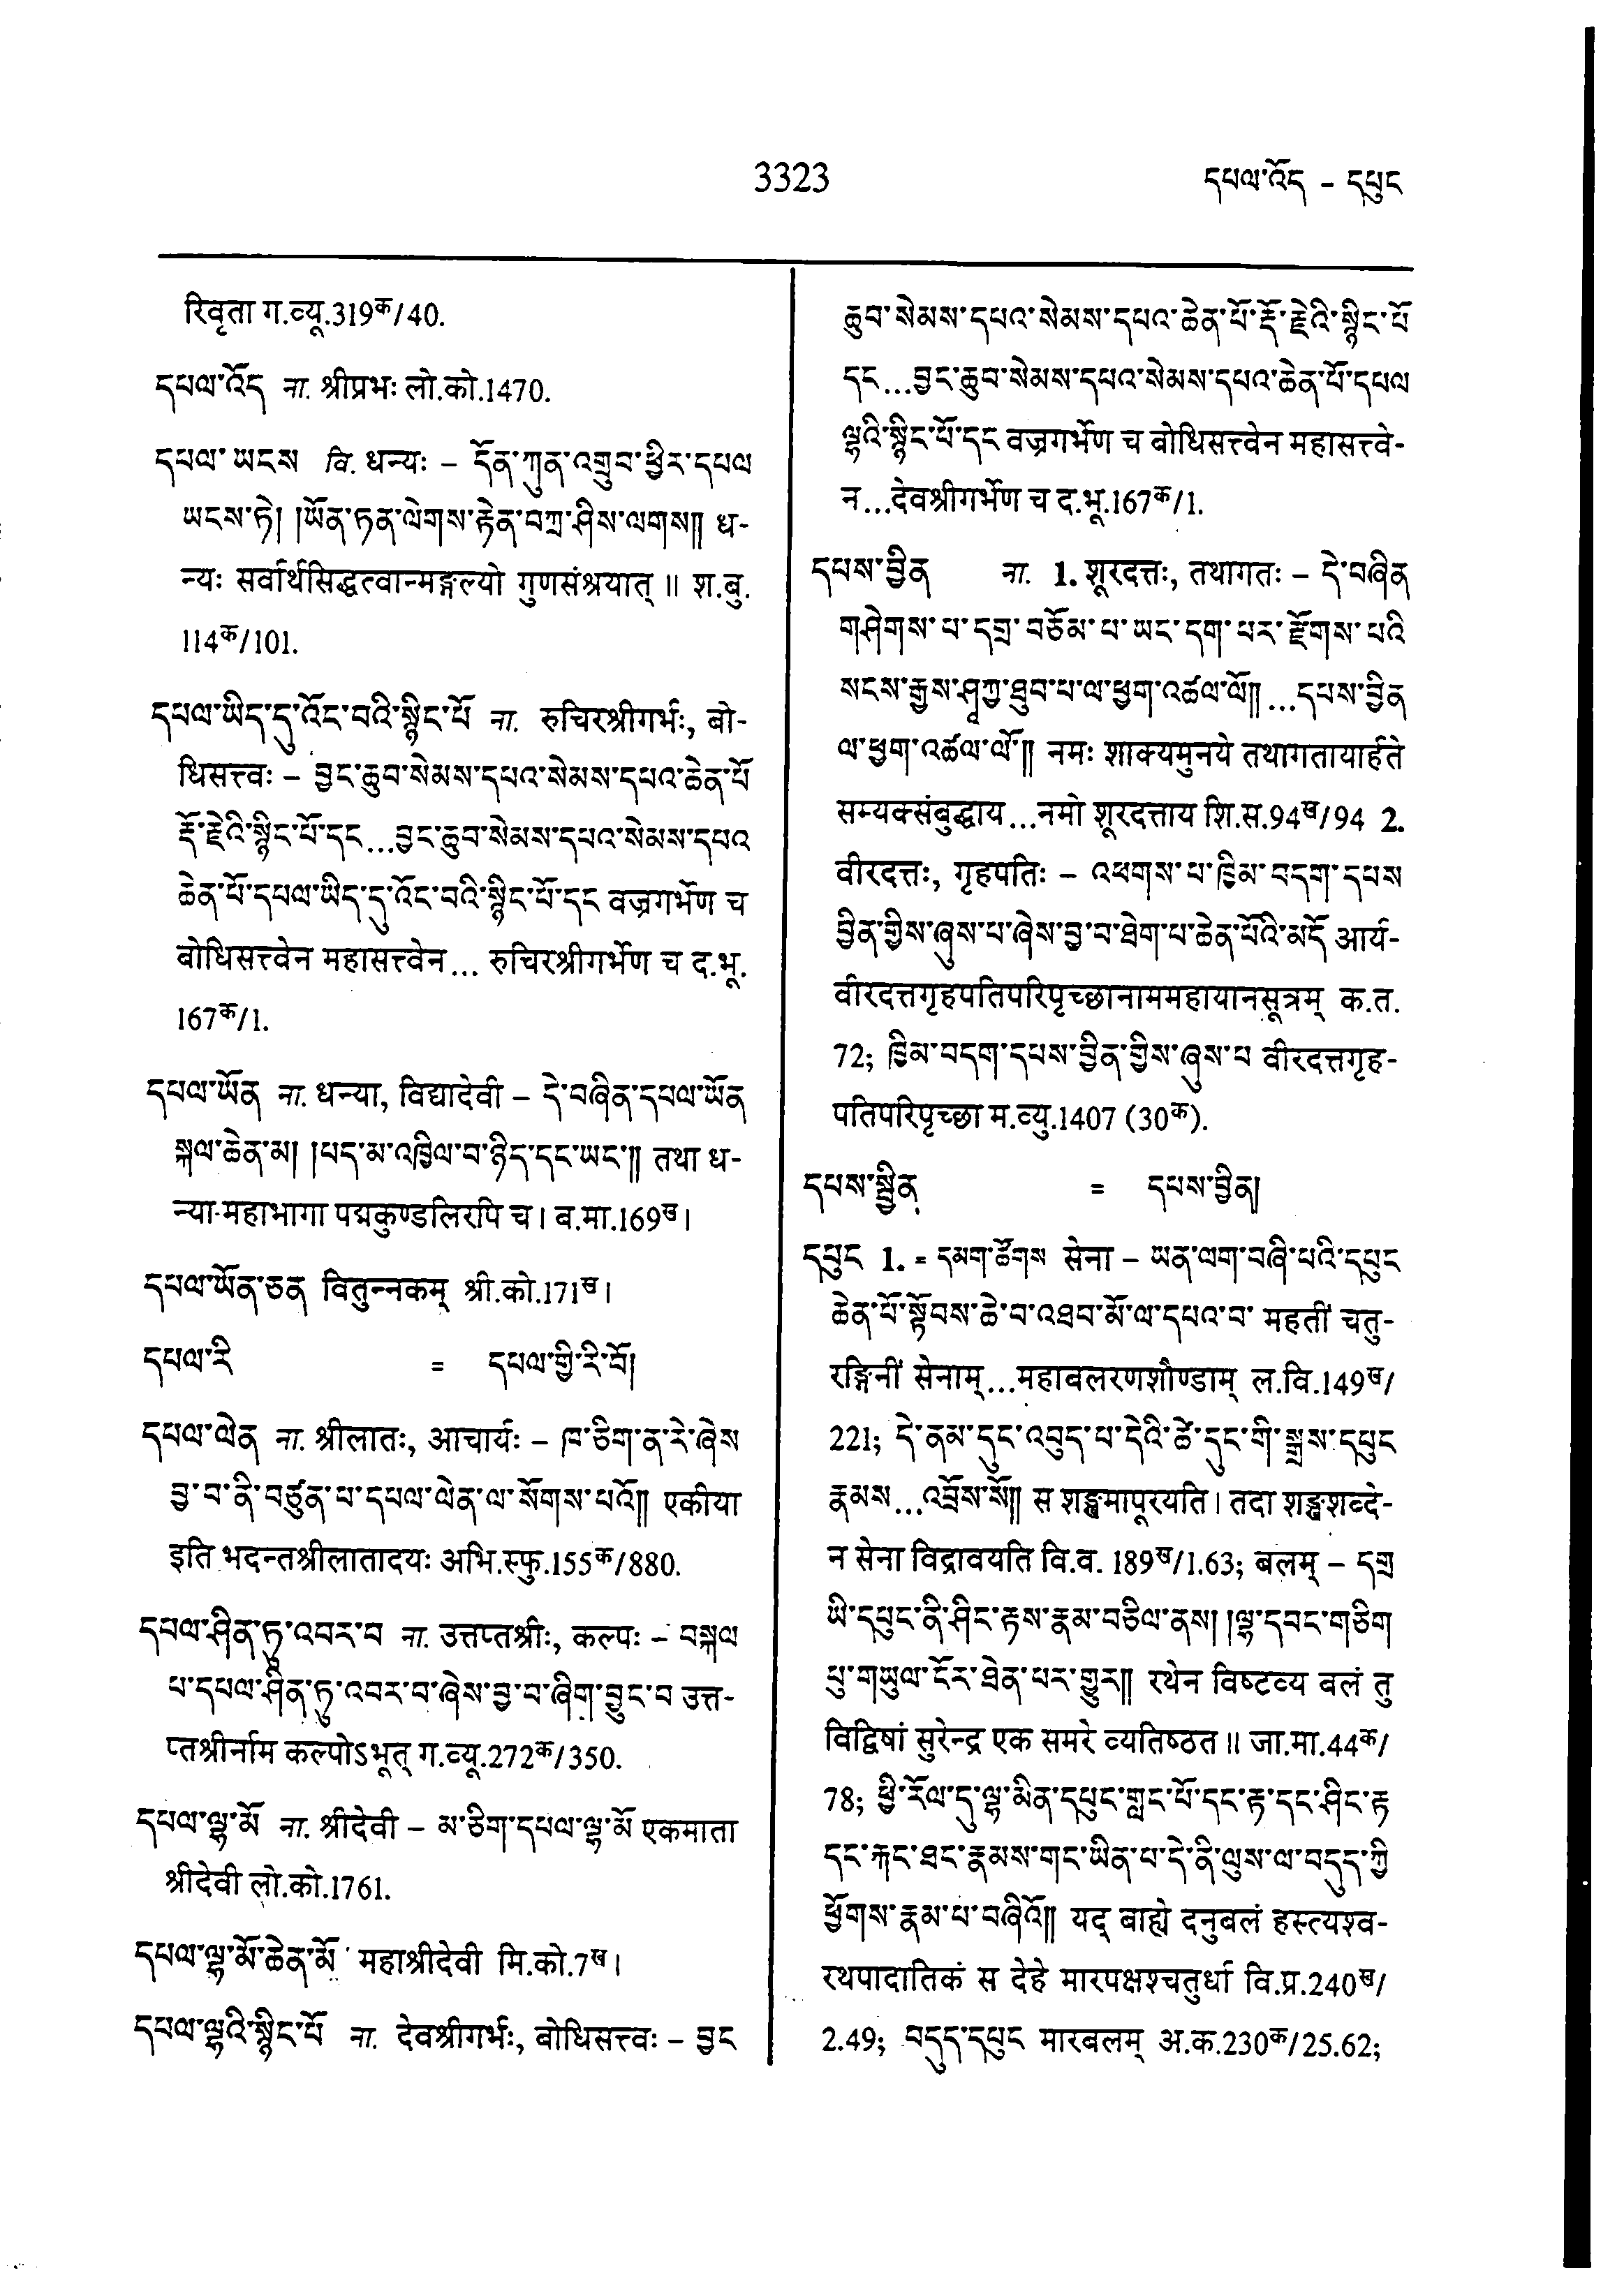 3323
དཔལ་འོད – དཔུང
रिवृता ग.व्यू.319क/40.
དཔལ་འོད ना. श्रीप्रभः लो.को.1470.
དཔལ་ཡངས वि. धन्यः – དོན་ཀུན་འགྲུབ་ཕྱིར་དཔལ
ཡངས་ཏེ། །ཡོན་ཏན་ལེགས་རྟེན་བཀྲ་ཤིས་ལགས༎ ध-
न्यः सर्वार्थसिद्धत्वान्मङ्गल्यो गुणसंश्रयात् ॥ श.बु.
114क/101.
དཔལ་ཡིད་དུ་འོང་བའི་སྙིང་པོ ना. रुचिरश्रीगर्भः, बो-
धिसत्त्वः – བྱང་ཆུབ་སེམས་དཔའ་སེམས་དཔའ་ཆེན་པོ
རྡོ་རྗེའི་སྙིང་པོ་དང...བྱང་ཆུབ་སེམས་དཔའ་སེམས་དཔའ
ཆེན་པོ་དཔལ་ཡིད་དུ་འོང་བའི་སྙིང་པོ་དང वज्रगर्भेण च
बोधिसत्त्वेन महासत्त्वेन... रुचिरश्रीगर्भेण च द.भू.
167क/1.
དཔལ་ཡོན ना. धन्या, विद्यादेवी – དེ་བཞིན་དཔལ་ཡོན
སྐལ་ཆེན་མ། །པད་མ་འཁྱིལ་བ་ཉིད་དང་ཡང་༎ तथा ध-
न्या महाभागा पद्मकुण्डलिरपि च। ब.मा.169ख।
དཔལ་ཡོན་ཅན वितुन्नकम् श्री.को.171ख।
དཔལ་རི = དཔལ་གྱི་རི་བོ།
དཔལ་ལེན ना. श्रीलातः, आचार्यः – ཁ་ཅིག་ན་རེ་ཞེས
བྱ་བ་ནི་བཙུན་པ་དཔལ་ལེན་ལ་སོགས་པའོ༎ एकीया
इति भदन्तश्रीलातादयः अभि.स्फु.155क/880.
དཔལ་ཤིན་ཏུ་འབར་བ ना. उत्तप्तश्रीः, कल्पः – བསྐལ
པ་དཔལ་ཤིན་ཏུ་འབར་བ་ཞེས་བྱ་བ་ཞིག་བྱུང་བ उत्त-
प्तश्रीर्नाम कल्पोऽभूत् ग.व्यू.272क/350.
དཔལ་ལྷ་མོ ना. श्रीदेवी – མ་ཅིག་དཔལ་ལྷ་མོ एकमाता
श्रीदेवी लो.को.1761.
དཔལ་ལྷ་མོ་ཆེན་མོ महाश्रीदेवी मि.को.7ख।
དཔལ་ལྷའི་སྙིང་པོ ना. देवश्रीगर्भः, बोधिसत्त्वः – བྱང
ཆུབ་སེམས་དཔའ་སེམས་དཔའ་ཆེན་པོ་རྡོ་རྗེའི་སྙིང་པོ
དང...བྱང་ཆུབ་སེམས་དཔའ་སེམས་དཔའ་ཆེན་པོ་དཔལ
ལྷའི་སྙིང་པོ་དང वज्रगर्भेण च बोधिसत्त्वेन महासत्त्वे-
न...देवश्रीगर्भेण च द.भू.167क/1.
དཔས་བྱིན ना. 1. शूरदत्तः, तथागतः – དེ་བཞིན
གཤེགས་པ་དགྲ་བཅོམ་པ་ཡང་དག་པར་རྫོགས་པའི
སངས་རྒྱས་ཤཱཀྱ་ཐུབ་པ་ལ་ཕྱག་འཚལ་ལོ༎...དཔས་བྱིན
ལ་ཕྱག་འཚལ་ལོ༎ नमः शाक्यमुनये तथागतायार्हते
सम्यक्संबुद्धाय...नमो शूरदत्ताय शि.स.94ख/94 2.
वीरदत्तः, गृहपतिः – འཕགས་པ་ཁྱིམ་བདག་དཔས
བྱིན་གྱིས་ཞུས་པ་ཞེས་བྱ་བ་ཐེག་པ་ཆེན་པོའི་མདོ आर्य-
वीरदत्तगृहपतिपरिपृच्छानाममहायानसूत्रम् क.त.
72; ཁྱིམ་བདག་དཔས་བྱིན་གྱིས་ཞུས་པ वीरदत्तगृह-
पतिपरिपृच्छा म.व्यु.1407 (30क).
དཔས་སྦྱིན = དཔས་བྱིན།
དཔུང 1. = དམག་ཚོགས सेना – ཡན་ལག་བཞི་པའི་དཔུང
ཆེན་པོ་སྟོབས་ཆེ་བ་འཐབ་མོ་ལ་དཔའ་བ་ महतीं चतु-
रङ्गिनीं सेनाम्...महाबलरणशौण्डाम् ल.वि.149ख/
221; དེ་ནམ་དུང་འབུད་པ་དེའི་ཚེ་དུང་གི་སྒྲས་དཔུང
རྣམས...འབྲོས་སོ༎ स शङ्खमापूरयति। तदा शङ्खशब्दे-
न सेना विद्रावयति वि.व. 189ख/1.63; बलम् – དགྲ
ཡི་དཔུང་ནི་ཤིང་རྟས་རྣམ་བཅིལ་ནས། །ལྷ་དབང་གཅིག
པུ་གཡུལ་ངོར་ཐེན་པར་གྱུར༎ रथेन विष्टव्य बलं तु
विद्विषां सुरेन्द्र एक समरे व्यतिष्ठत॥ जा.मा.44क/
78; ཕྱི་རོལ་དུ་ལྷ་མིན་དཔུང་གླང་པོ་དང་རྟ་དང་ཤིང་རྟ
དང་རྐང་ཐང་རྣམས་གང་ཡིན་པ་དེ་ནི་ལུས་ལ་བདུད་ཀྱི
ཕྱོགས་རྣམ་པ་བཞིའོ༎ यद् बाह्ये दनुबलं हस्त्यश्व-
रथपादातिकं स देहे मारपक्षश्चतुर्धा वि.प्र.240ख/
2.49; བདུད་དཔུང मारबलम् अ.क.230क/25.62;